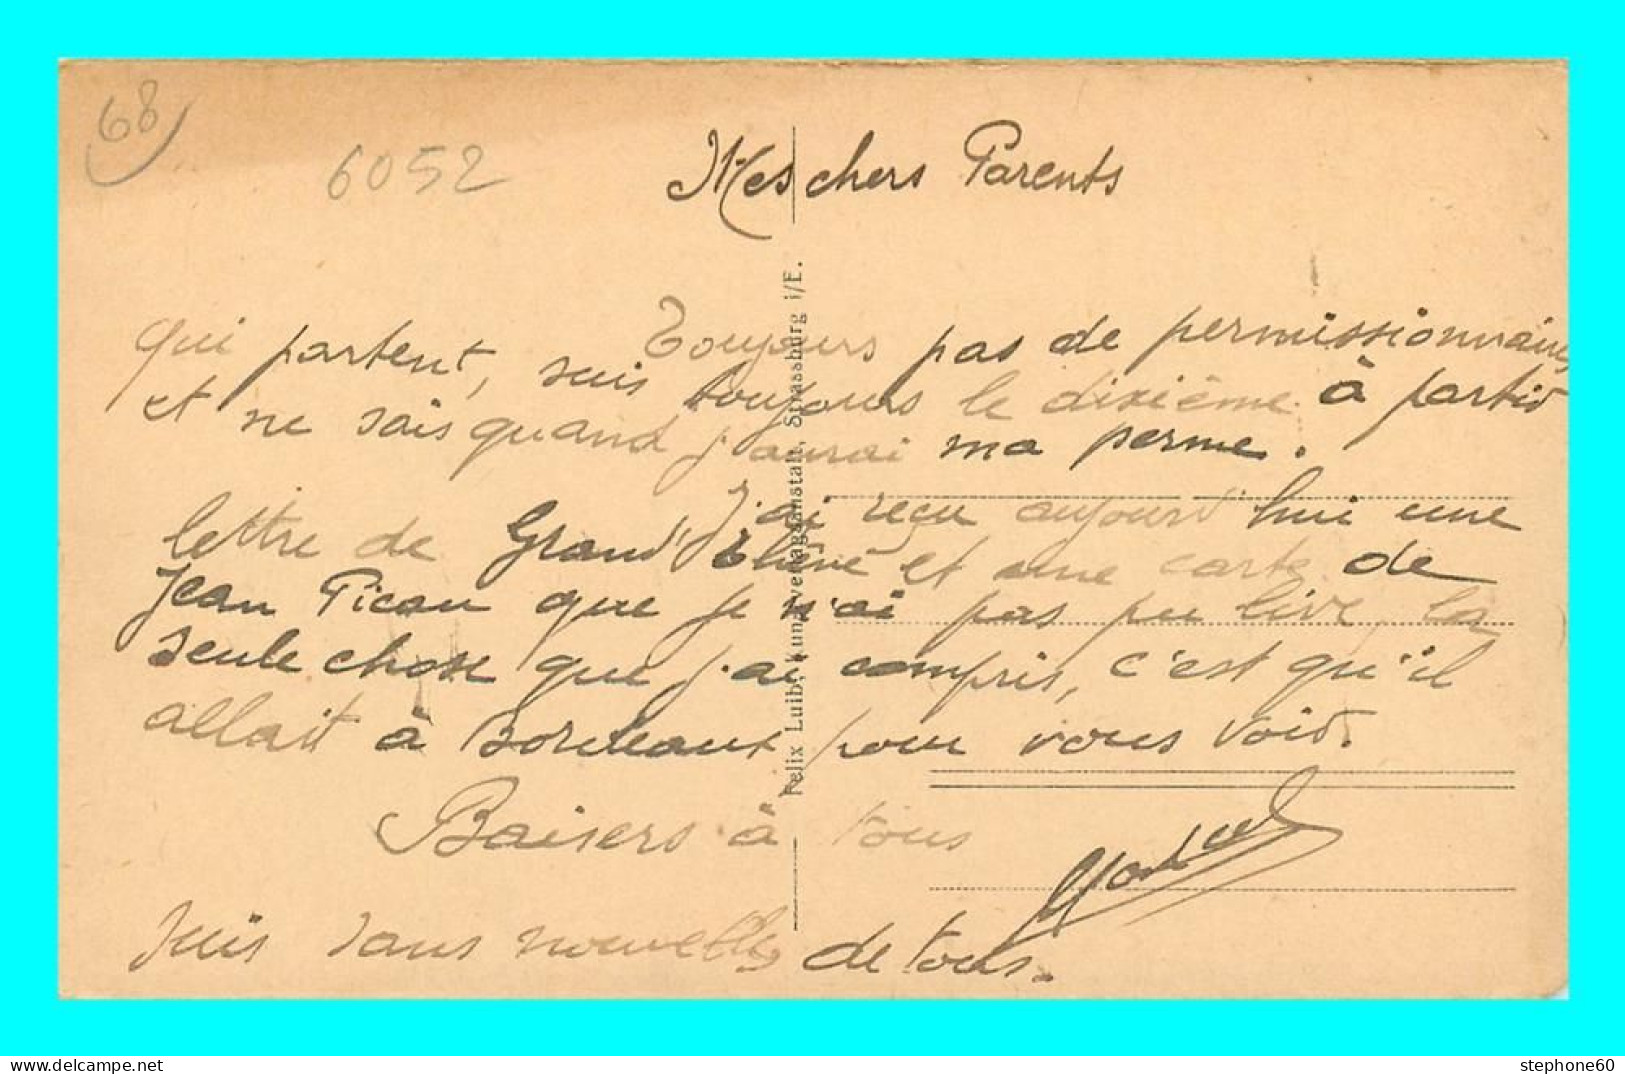 68
6052
Mes chers Parents
Toujours pas de permissionnaires
qui partent, suis toujours le dixième à partir
et ne sais quand j'aurai ma perme.
J'ai reçu aujourd'hui une
lettre de Grand' et une carte de
Jean Picau que je n'ai pas pu lire, la
seule chose que j'ai compris, c'est qu'il
allait à Bordeaux pour vous voir.
Baisers à tous
Suis sans nouvelles de tous.
Felix Luib, Kunstverlagsanstalt, Strassburg i/E.
stephone60